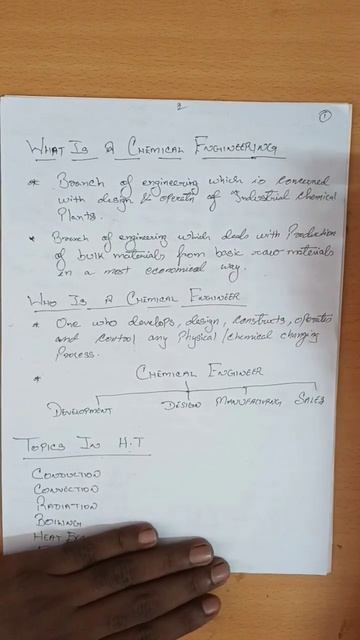 2
1
What Is A Chemical Engineering
* Branch of engineering which is concerned
with design & operatn of Industrial Chemical
Plants.
* Branch of engineering which deals with Production
of bulk materials from basic raw materials
in a most economical way.
Who Is A Chemical Engineer
* One who develops, design, constructs, operates
and control any Physical/Chemical changing
Process.
* Chemical Engineer
Development Design Manufacturing Sales
Topics In H.T
Conduction
Convection
Radiation
Boiling
Heat